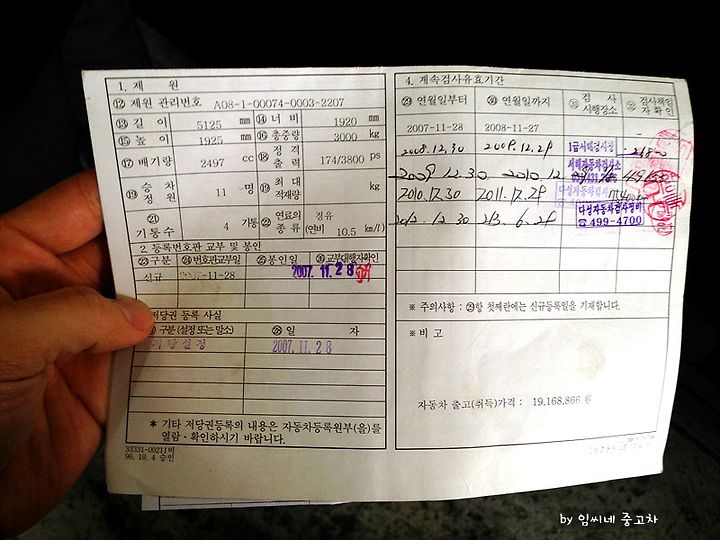 1. 제 원
⑫ 제원 관리번호 A08-1-00074-0003-2207
⑬ 길 이 5125 mm ⑭ 너 비 1920 mm
⑮ 높 이 1925 mm ⑯ 총중량 3000 kg
⑰ 배기량 2497 cc ⑱ 정 격 출 력 174/3800 ps
⑲ 승 차 정 원 11 명 ⑲ 최 대 적재량 kg
㉑ 기통수 4 기통 ㉒ 연료의 종류 경유 (연비 10.5 km/ℓ)
2. 등록번호판 교부 및 봉인
㉓ 구분 ㉔ 번호판교부일 ㉕ 봉인일 ㉖ 교부대행자확인
신규 2007-11-28 2007. 11. 28
저당권 등록 사실
구분 (설정 또는 말소) ㉘ 일 자
저당설정 2007. 11. 28
※ 기타 저당권등록의 내용은 자동차등록원부(을)를
열람·확인하시기 바랍니다.
33331-00211비
96. 10. 4 승인
4. 계속검사유효기간
㉙ 연월일부터 ㉚ 연월일까지 ㉛ 검 사 시행장소 ㉜ 검사책임자확인
2007-11-28 2008-11-27 -
2008.12.30 2009.12.29 1급서해검사정
2009.12.30 2010.12 서해자동차검사소
2010.12.30 2011.12.29 다성자동차검사
2012.12.30 213.6.29 다성자동차검사정비
☎ 499-4700
※ 주의사항 : ㉙항 첫째란에는 신규등록일을 기재합니다.
※ 비 고
자동차 출고(취득)가격 : 19,168,866 원
by 임씨네 중고차